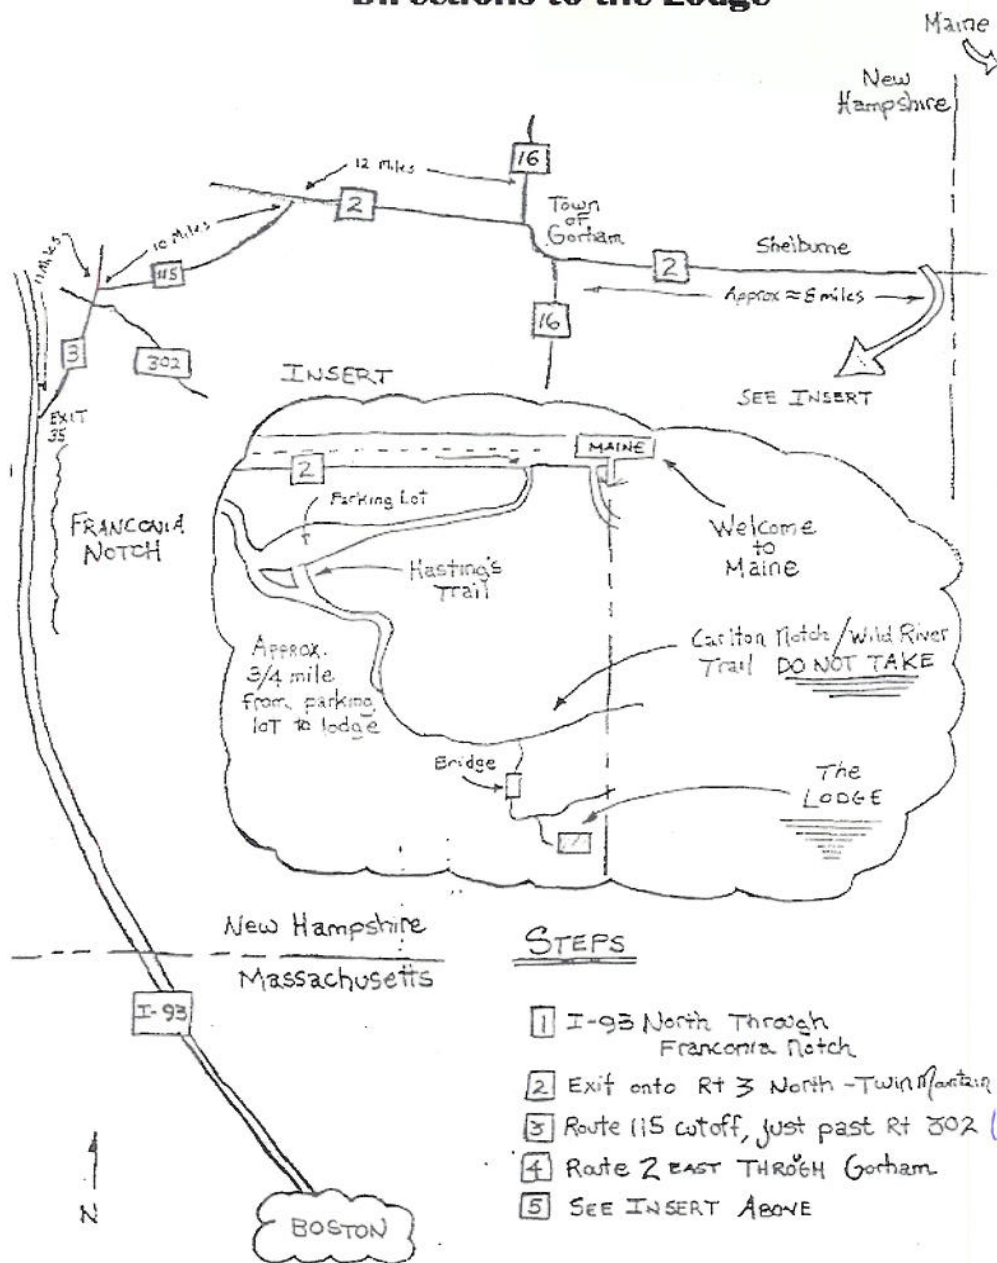 Directions to the Lodge
Maine
New
Hampshire
16
12 Miles
2
Town
OF
Gorham
Shelburne
10 Miles
11 Miles
115
2
Approx ≈ 8 miles
16
3
302
INSERT
SEE INSERT
EXIT
35
MAINE
2
Parking Lot
FRANCONIA
NOTCH
Welcome
to
Maine
Hasting's
Trail
Carlton Notch / Wild River
Trail DO NOT TAKE
Approx.
3/4 mile
from parking
lot to lodge
Bridge
The
LODGE
New Hampshire
Massachusetts
I-93
N
BOSTON
STEPS
1 I-93 North Through
Franconia Notch
2 Exit onto Rt 3 North - Twin Mountain
3 Route 115 cutoff, just past Rt 302
4 Route 2 EAST THROUGH Gorham
5 SEE INSERT ABOVE